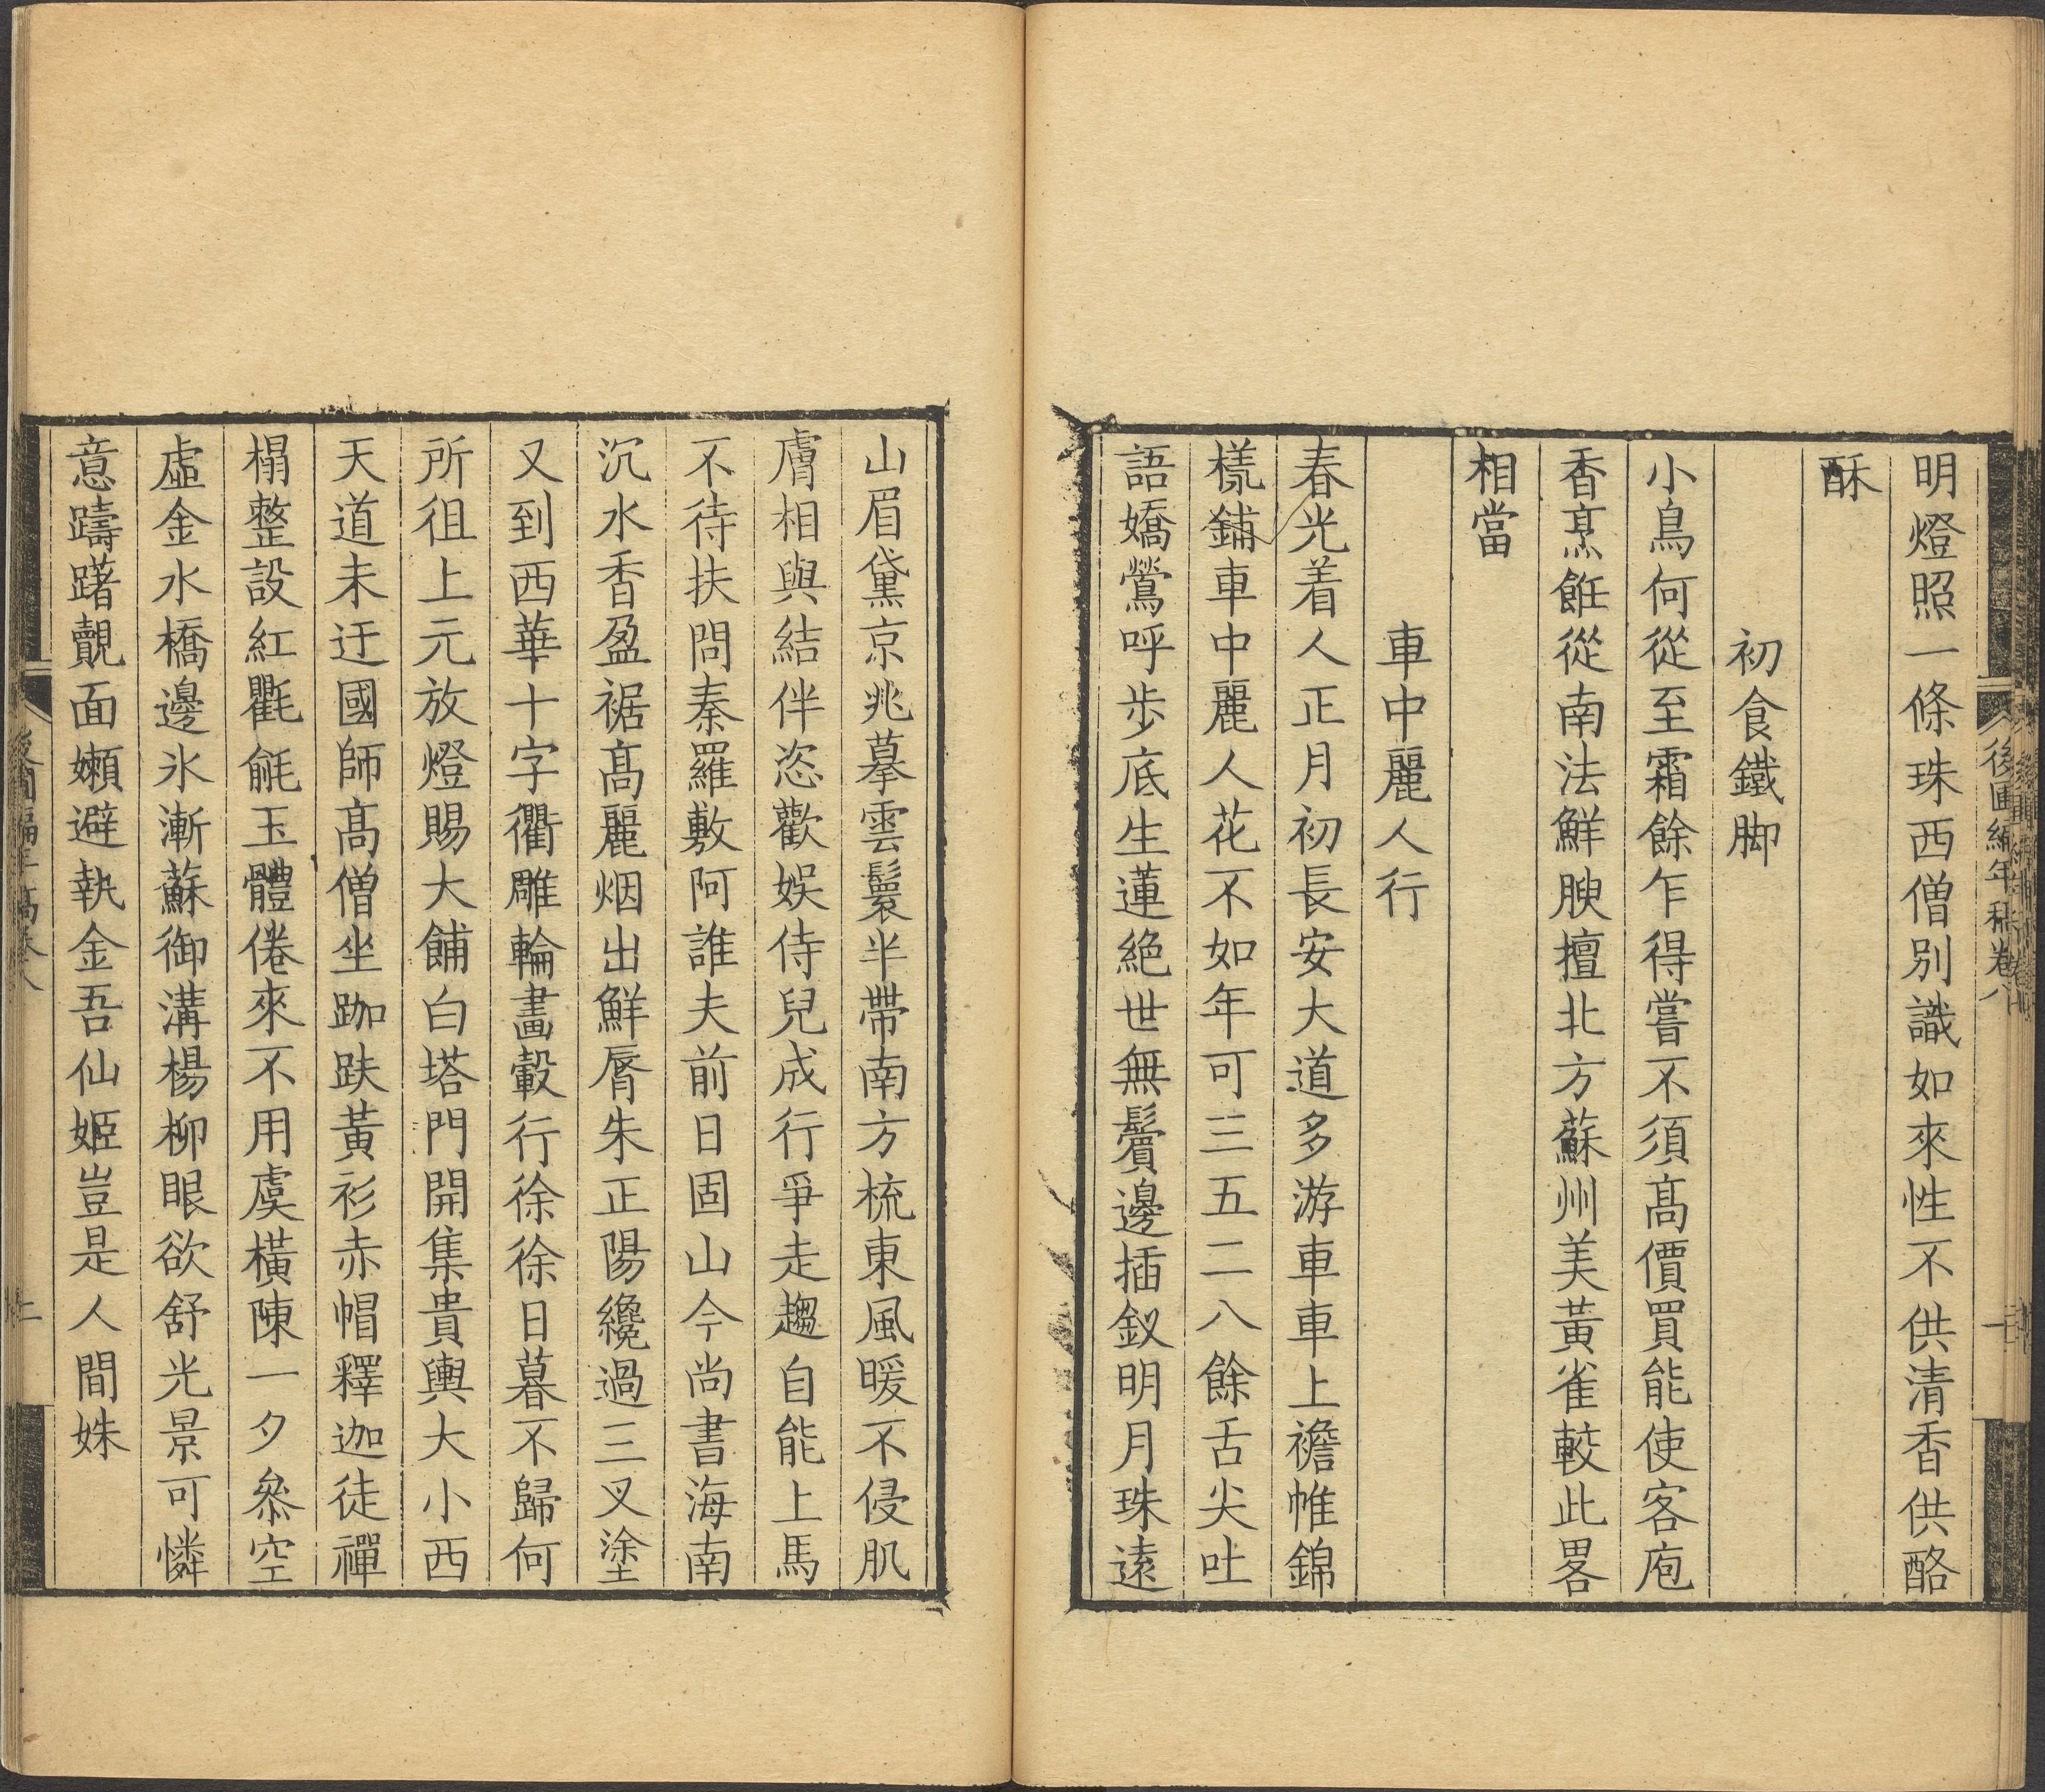 明燈照一條珠西僧別識如來性不供清香供酪
酥
初食鐵脚
小鳥何從至霜餘乍得嘗不須髙價買能使客庖
香烹飪從南法鮮腴擅北方蘇州美黃雀較此畧
相當
車中麗人行
春光着人正月初長安大道多游車車上襜帷錦
㼓鋪車中麗人花不如年可三五二八餘舌尖吐
語嬌鶯呼步底生蓮絕世無鬢邊插釵明月珠遠
山眉黛京兆摹雲鬟半帶南方梳東風暖不侵肌
膚相與結伴恣歡娛侍兒成行爭走趨自能上馬
不待扶問秦羅敷阿誰夫前日固山今尚書海南
沉水香盈裾髙麗烟出鮮脣朱正陽纔過三叉塗
又到西華十字衢雕輪畫轂行徐徐日暮不歸何
所徂上元放燈賜大酺白塔門開集貴輿大小西
天道未迂國師髙僧坐跏趺黃衫赤帽釋迦徒禪
榻整設紅氍毹玉體倦來不用虞橫陳一夕叅空
虛金水橋邊氷漸蘇御溝楊柳眼欲舒光景可憐
意躊躇覿面嬾避執金吾仙姬豈是人間姝
後圃編年稿卷八
一
後圃編年稿卷八
二